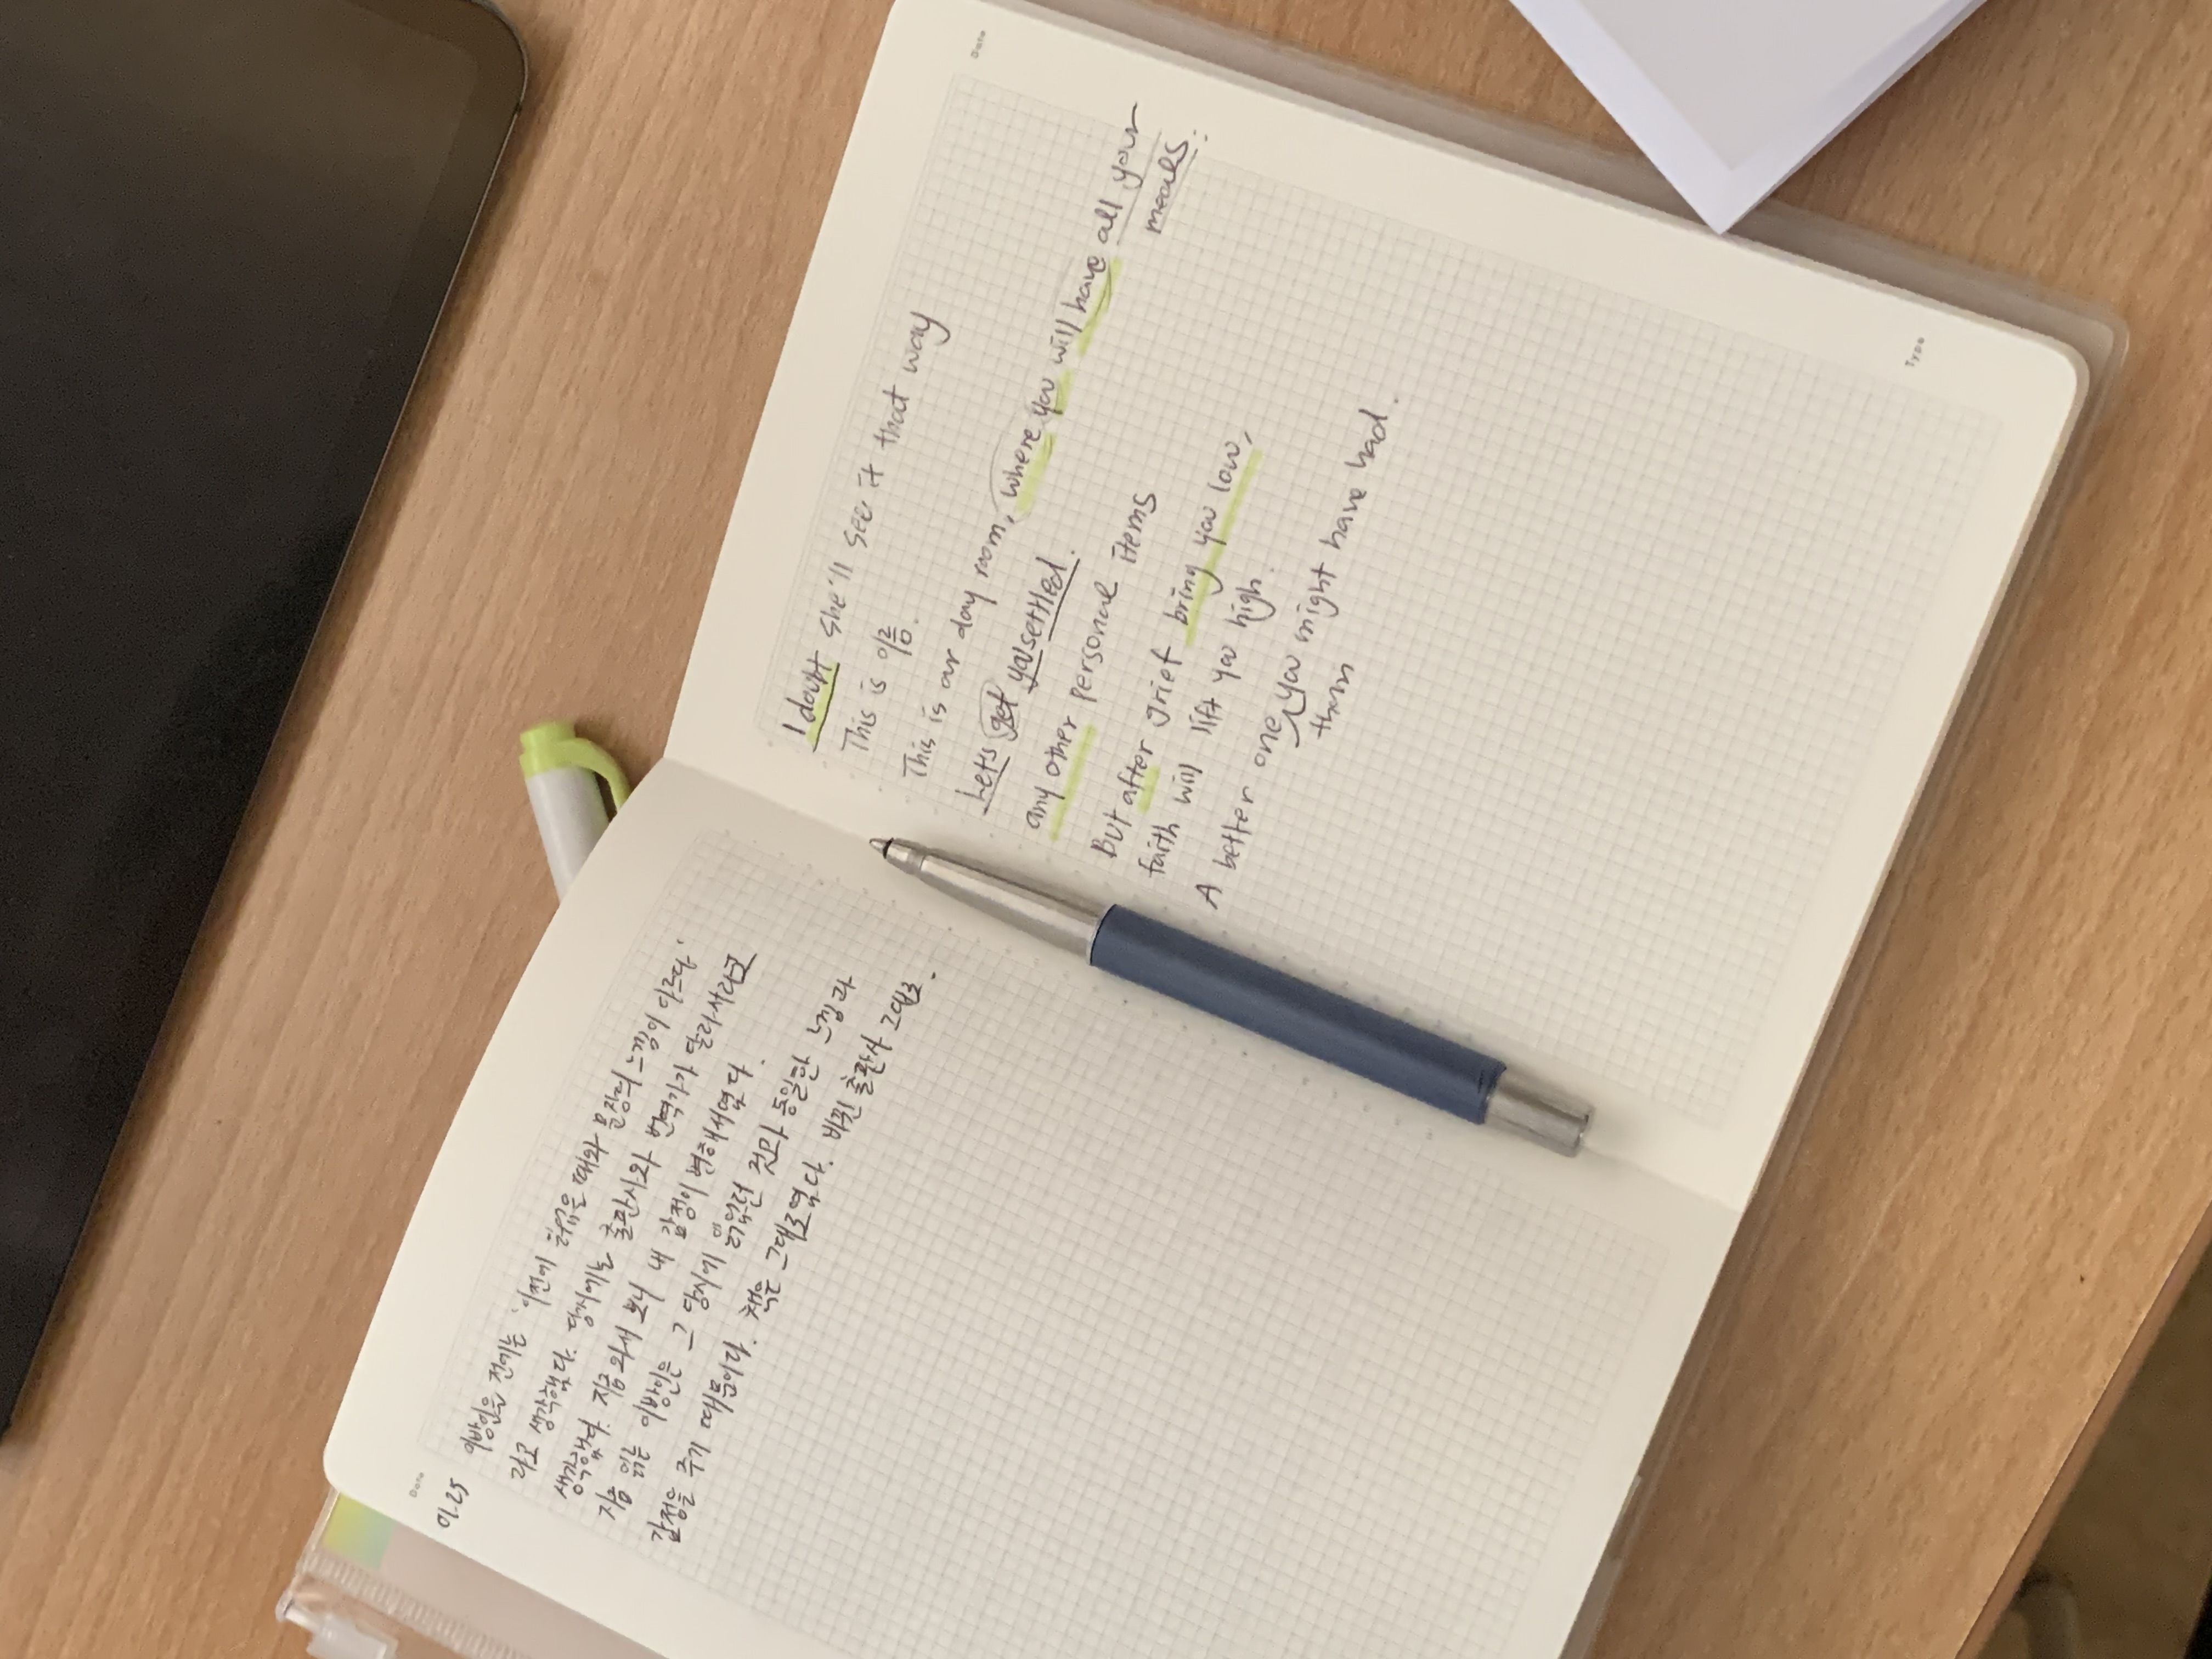 Date
01.25
이방인을 전에는, 이전에 읽었을 때와 문장의 느낌이 다르다.
라고 생각했다. 당시에는 출판사와 번역가가 달라서라고
생각했나. 지금 와서 보니 내 감정이 변해서였다.
지금 읽는 이방인은 그 당시에 읽었던 것과 동일한 느낌과
감정을 주기 때문이다. 책은 그대로였다. 바뀐 출판사 그대로.
Date
I doubt she'll see it that way
This is 이름.
This is our day room, where you will have all your
meals.
Let's get you settled.
any other personal items
But after grief bring you low,
faith will lift you high.
A better one you might have had.
than
Type